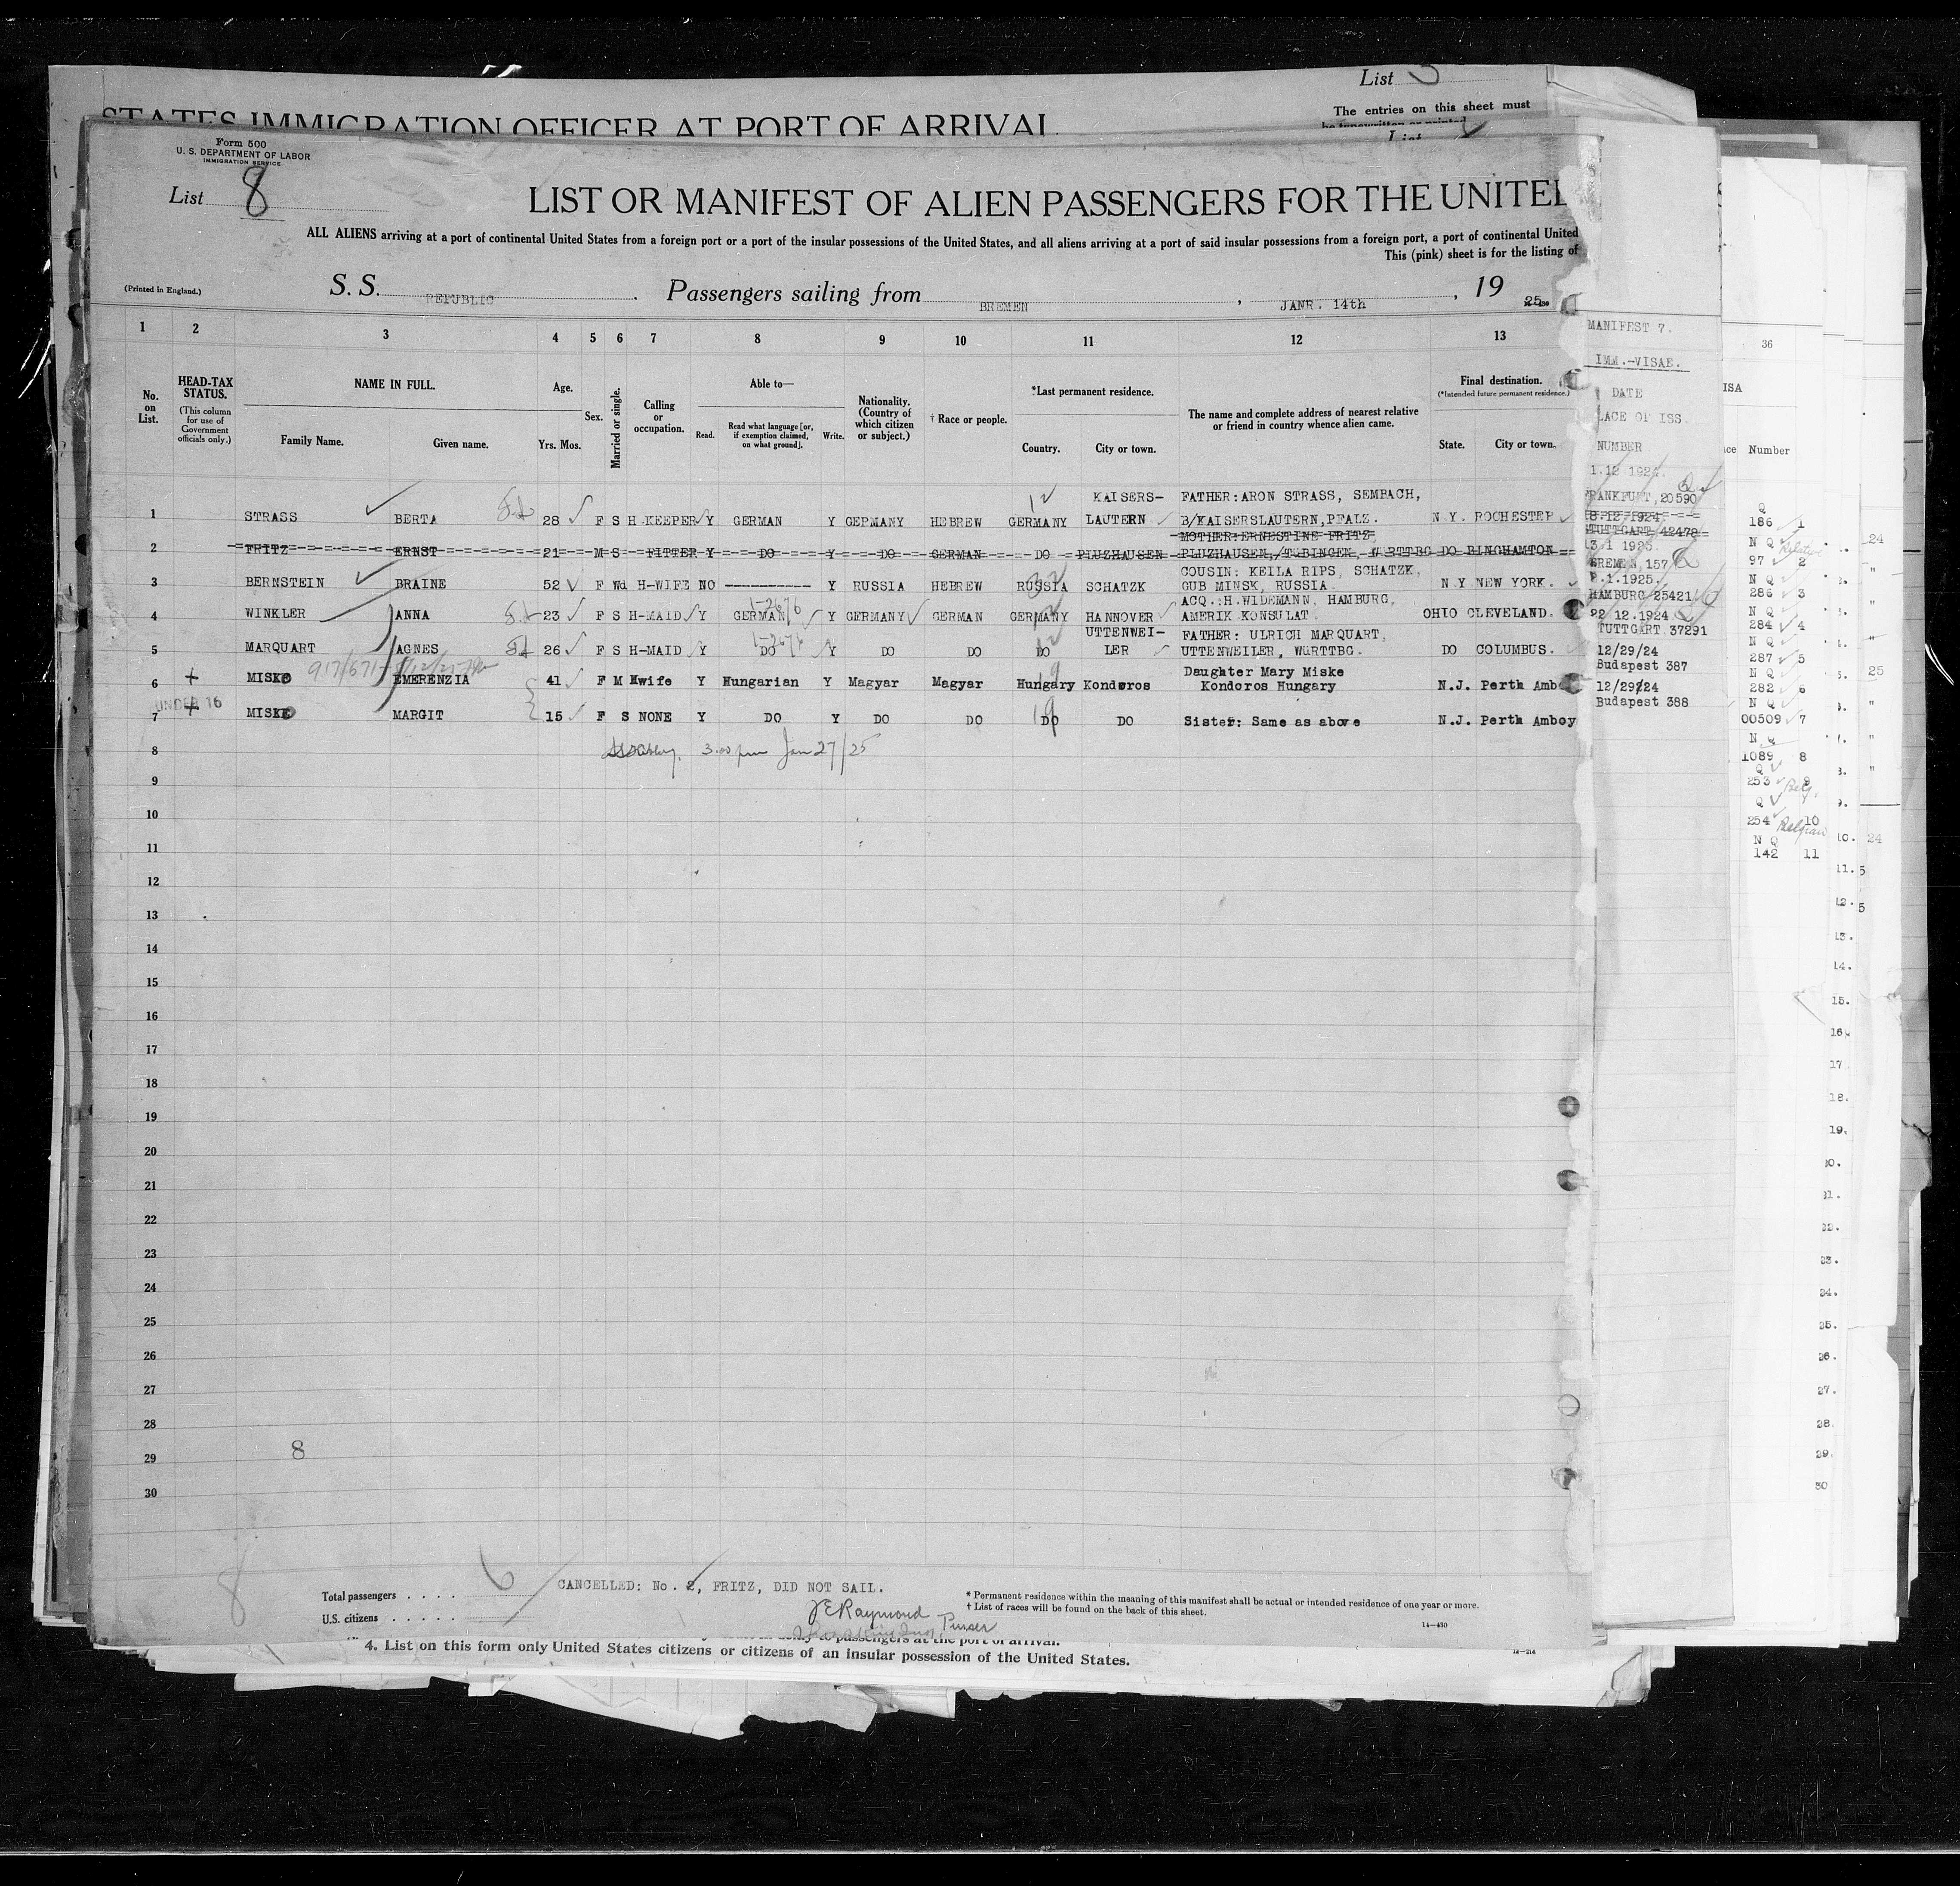 List
STATES IMMIGRATION OFFICER AT PORT OF ARRIVAL
The entries on this sheet must
be typewritten or printed
List
Form 500
U. S. DEPARTMENT OF LABOR
IMMIGRATION SERVICE
List 8
LIST OR MANIFEST OF ALIEN PASSENGERS FOR THE UNITED
ALL ALIENS arriving at a port of continental United States from a foreign port or a port of the insular possessions of the United States, and all aliens arriving at a port of said insular possessions from a foreign port, a port of continental United
This (pink) sheet is for the listing of
(Printed in England.)
S. S. REPUBLIC. Passengers sailing from BREMEN, JANR. 14th, 19 25
1 2 3 4 5 6 7 8 9 10 11 12 13
No. on List.
HEAD-TAX STATUS.
(This column for use of Government officials only.)
NAME IN FULL.
Family Name. Given name.
Age.
Yrs. Mos.
Sex.
Married or single.
Calling or occupation.
Able to—
Read. Read what language [or, if exemption claimed, on what ground]. Write.
Nationality. (Country of which citizen or subject.)
† Race or people.
*Last permanent residence.
Country. City or town.
The name and complete address of nearest relative or friend in country whence alien came.
Final destination.
(*Intended future permanent residence.)
State. City or town.
KAISERS- FATHER:ARON STRASS, SEMBACH,
1 STRASS BERTA 28 F S H KEEPER Y GERMAN Y GERMANY HEBREW GERMANY LAUTERN B/KAISERSLAUTERN,PFALZ. N.Y. ROCHESTER
MOTHER:ERNESTINE FRITZ,
2 FRITZ ERNST 21 M S FITTER Y DO Y DO GERMAN DO PLUZHAUSEN PLUZHAUSEN,/TUBINGEN WURTTBG DO BINGHAMTON
COUSIN: KEILA RIPS, SCHATZK,
3 BERNSTEIN BRAINE 52 F Wd H-WIFE NO ----------- Y RUSSIA HEBREW RUSSIA SCHATZK GUB MINSK, RUSSIA. N.Y NEW YORK.
1-2676
ACQ.:H.WIDEMANN, HAMBURG,
4 WINKLER ANNA 23 F S H-MAID Y GERMAN Y GERMANY GERMAN GERMANY HANNOVER AMERIK KONSULAT. OHIO CLEVELAND.
1-2676
UTTENWEI- FATHER: ULRICH MARQUART,
5 MARQUART AGNES 26 F S H-MAID Y DO Y DO DO DO LER UTTENWEILER, WURTTBG. DO COLUMBUS.
Daughter Mary Miske
6 MISKE EMERENZIA 41 F M Hwife Y Hungarian Y Magyar Magyar Hungary Kondoros Kondoros Hungary N.J. Perth Amboy
UNDER 16
7 MISKE MARGIT 15 F S NONE Y DO Y DO DO DO DO Sister: Same as above N.J. Perth Amboy
8 3.00 pm Jan 27/25
9
10
11
12
13
14
15
16
17
18
19
20
21
22
23
24
25
26
27
28
29
30
8
8
Total passengers . . . . . 6
U.S. citizens . . . . . .
CANCELLED: No. 2, FRITZ, DID NOT SAIL.
J E Raymond
Purser
* Permanent residence within the meaning of this manifest shall be actual or intended residence of one year or more.
† List of races will be found on the back of this sheet.
14—430
4. List on this form only United States citizens or citizens of an insular possession of the United States.
14—214
MANIFEST 7.
IMM.-VISAE.
DATE
LACE OF ISS.
NUMBER
1.12 1924.
FRANKFUT,20590
8.12.1924.
STUTTGART 42478
3.1 1925.
BREMEN,157
2.1.1925.
HAMBURG 25421
22 12.1924
TUTTGART 37291
12/29/24
Budapest 387
12/29/24
Budapest 388
36
ISA
Number
Q
186 1
N Q
97 2
N Q
286 3
N Q
284 4
N Q
287 5
N Q
282 6
00509 7
N Q
1089 8
Q
253 9
Q
254 10
Belgian
N Q
142 11
24
25
24